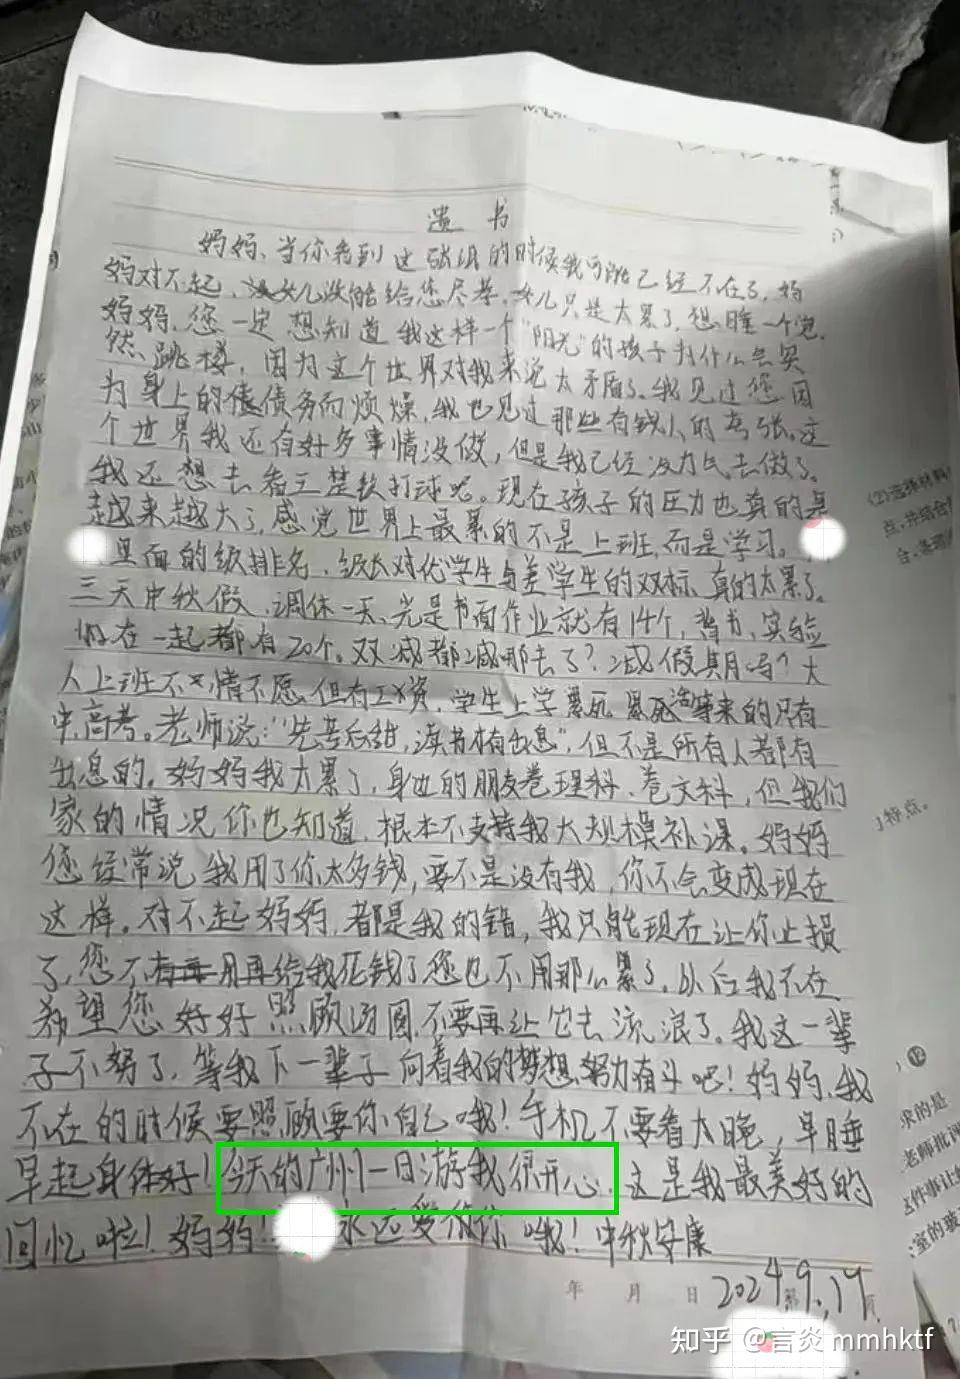 遗书
妈妈、当你看到这张纸的时候我可能已经不在了,妈
妈对不起、没女儿没能给您尽孝,女儿只是太累了,想睡一个觉.
妈妈,您一定想知道我这样一个"阳光"的孩子为什么会突
然跳楼,因为这个世界对我来说太矛盾了。我见过您因
为身上的债务而烦燥,我也见过那些有钱人的夸张。这
个世界我还有好多事情没做,但是我已经没力气去做了。
我还想去看王楚钦打球呢。现在孩子的压力也真的是
越来越大了,感觉世界上最累的不是上班,而是学习。
里面的级排名、级长对优学生与差学生的双标,真的太累了。
三天中秋假,调休一天、光是书面作业就有14个,背书、实验
加在一起都有20个。双减都减哪去了?减假期吗?大
人上班不情不愿但有工资,学生上学累死累死等来的只有
中,高考。老师说:"先苦后甜,读书才有出息",但不是所有人都有
出息的。妈妈我太累了,身边的朋友卷理科、卷文科,但我们
家的情况你也知道,根本不支持我大规模补课。妈妈
您经常说我用了你太多钱,要不是没有我,你不会变成现在
这样。对不起妈妈,都是我的错,我只能现在让你止损
了,您不用再给我花钱了您也不用那么累了。以后我不在
希望您好好照顾汤圆,不要再让它去流浪了。我这一辈
子不努了,等我下一辈子向着我的梦想努力奋斗吧!妈妈,我
不在的时候要照顾要你自己哦!手机不要看太晚,早睡
早起身体好!今天的广州一日游我很开心,这是我最美好的
回忆啦!妈妈!永远爱你哦!中秋安康
年 月 日 2024.9.17
第 页
(2)选择材料
点,并结合
特点。
⑫
求的是
老师批评
这件事让
室的玻
知乎 @言炎mmhktf